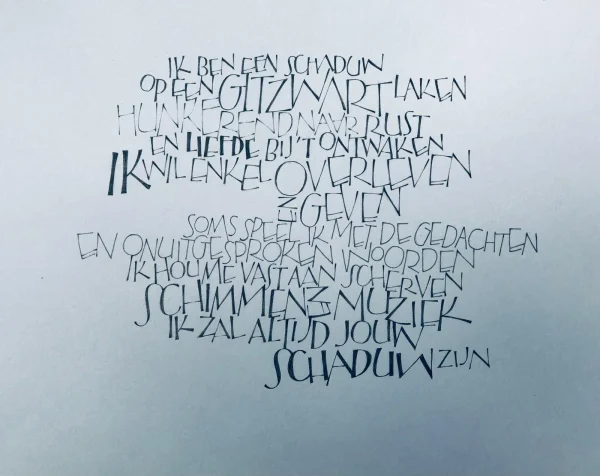 IK BEN EEN SCHADUW
OP EEN GITZWART LAKEN
HUNKEREND NAAR RUST
EN LIEFDE BIJ 'T ONTWAKEN
IK WIL ENKEL OVERLEVEN
EN GEVEN
SOMS SPEEL IK MET DE GEDACHTEN
EN ONUITGESPROKEN WOORDEN
IK HOU ME VAST AAN SCHERVEN
SCHIMMEN EN MUZIEK
IK ZAL ALTIJD JOUW
SCHADUW ZIJN